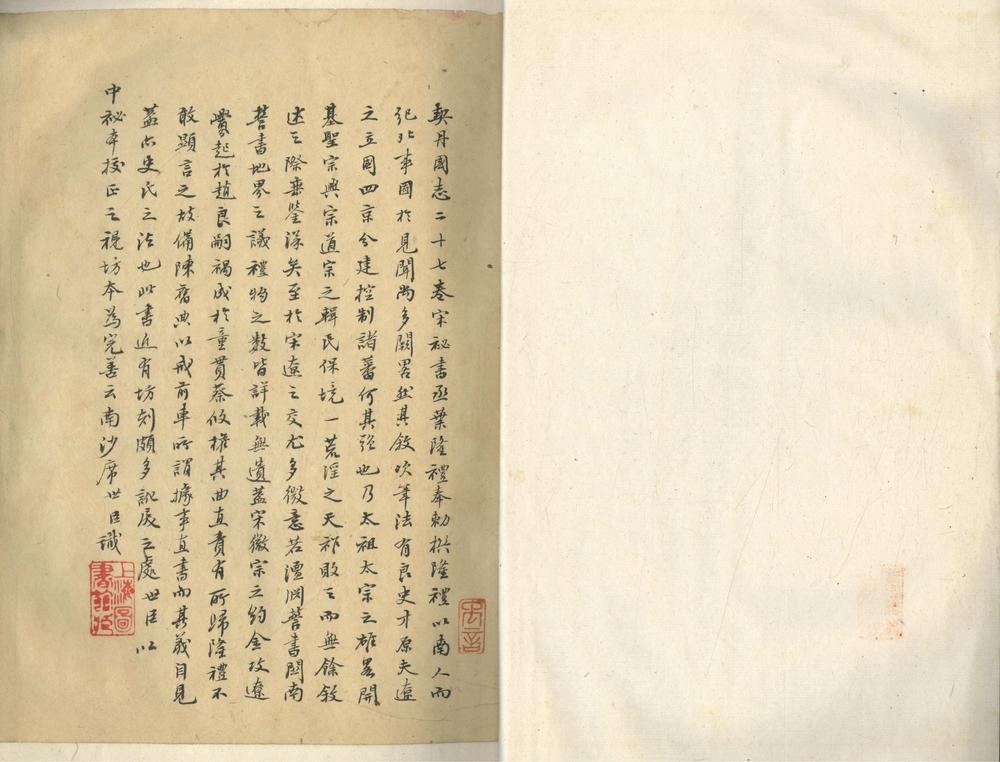 契丹國志二十七卷宋祕書丞葉隆禮奉勅撰隆禮以南人而
紀北事國於見聞尚多闕畧然其敘次筆法有良史才原夫遼
之立國四京分建控制諸蕃何其强也乃太祖太宗之雄畧開
基聖宗興宗道宗之輯民保境一荒淫之天祚敗之而無餘敘
述之際垂鑒深矣至於宋遼之交尤多微意若澶淵誓書關南
誓書地界之議禮物之數皆詳載無遺蓋宋徽宗之約金攻遼
釁起於趙良嗣禍成於童貫蔡攸權其曲直責有所歸隆禮不
敢顯言之故備陳舊典以戒前車所謂據事直書而其義自見
蓋亦史氏之法也此書近有坊刻頗多訛戾之處世臣以
中祕本挍正之視坊本為完善云南沙席世臣識
上海圖書館藏